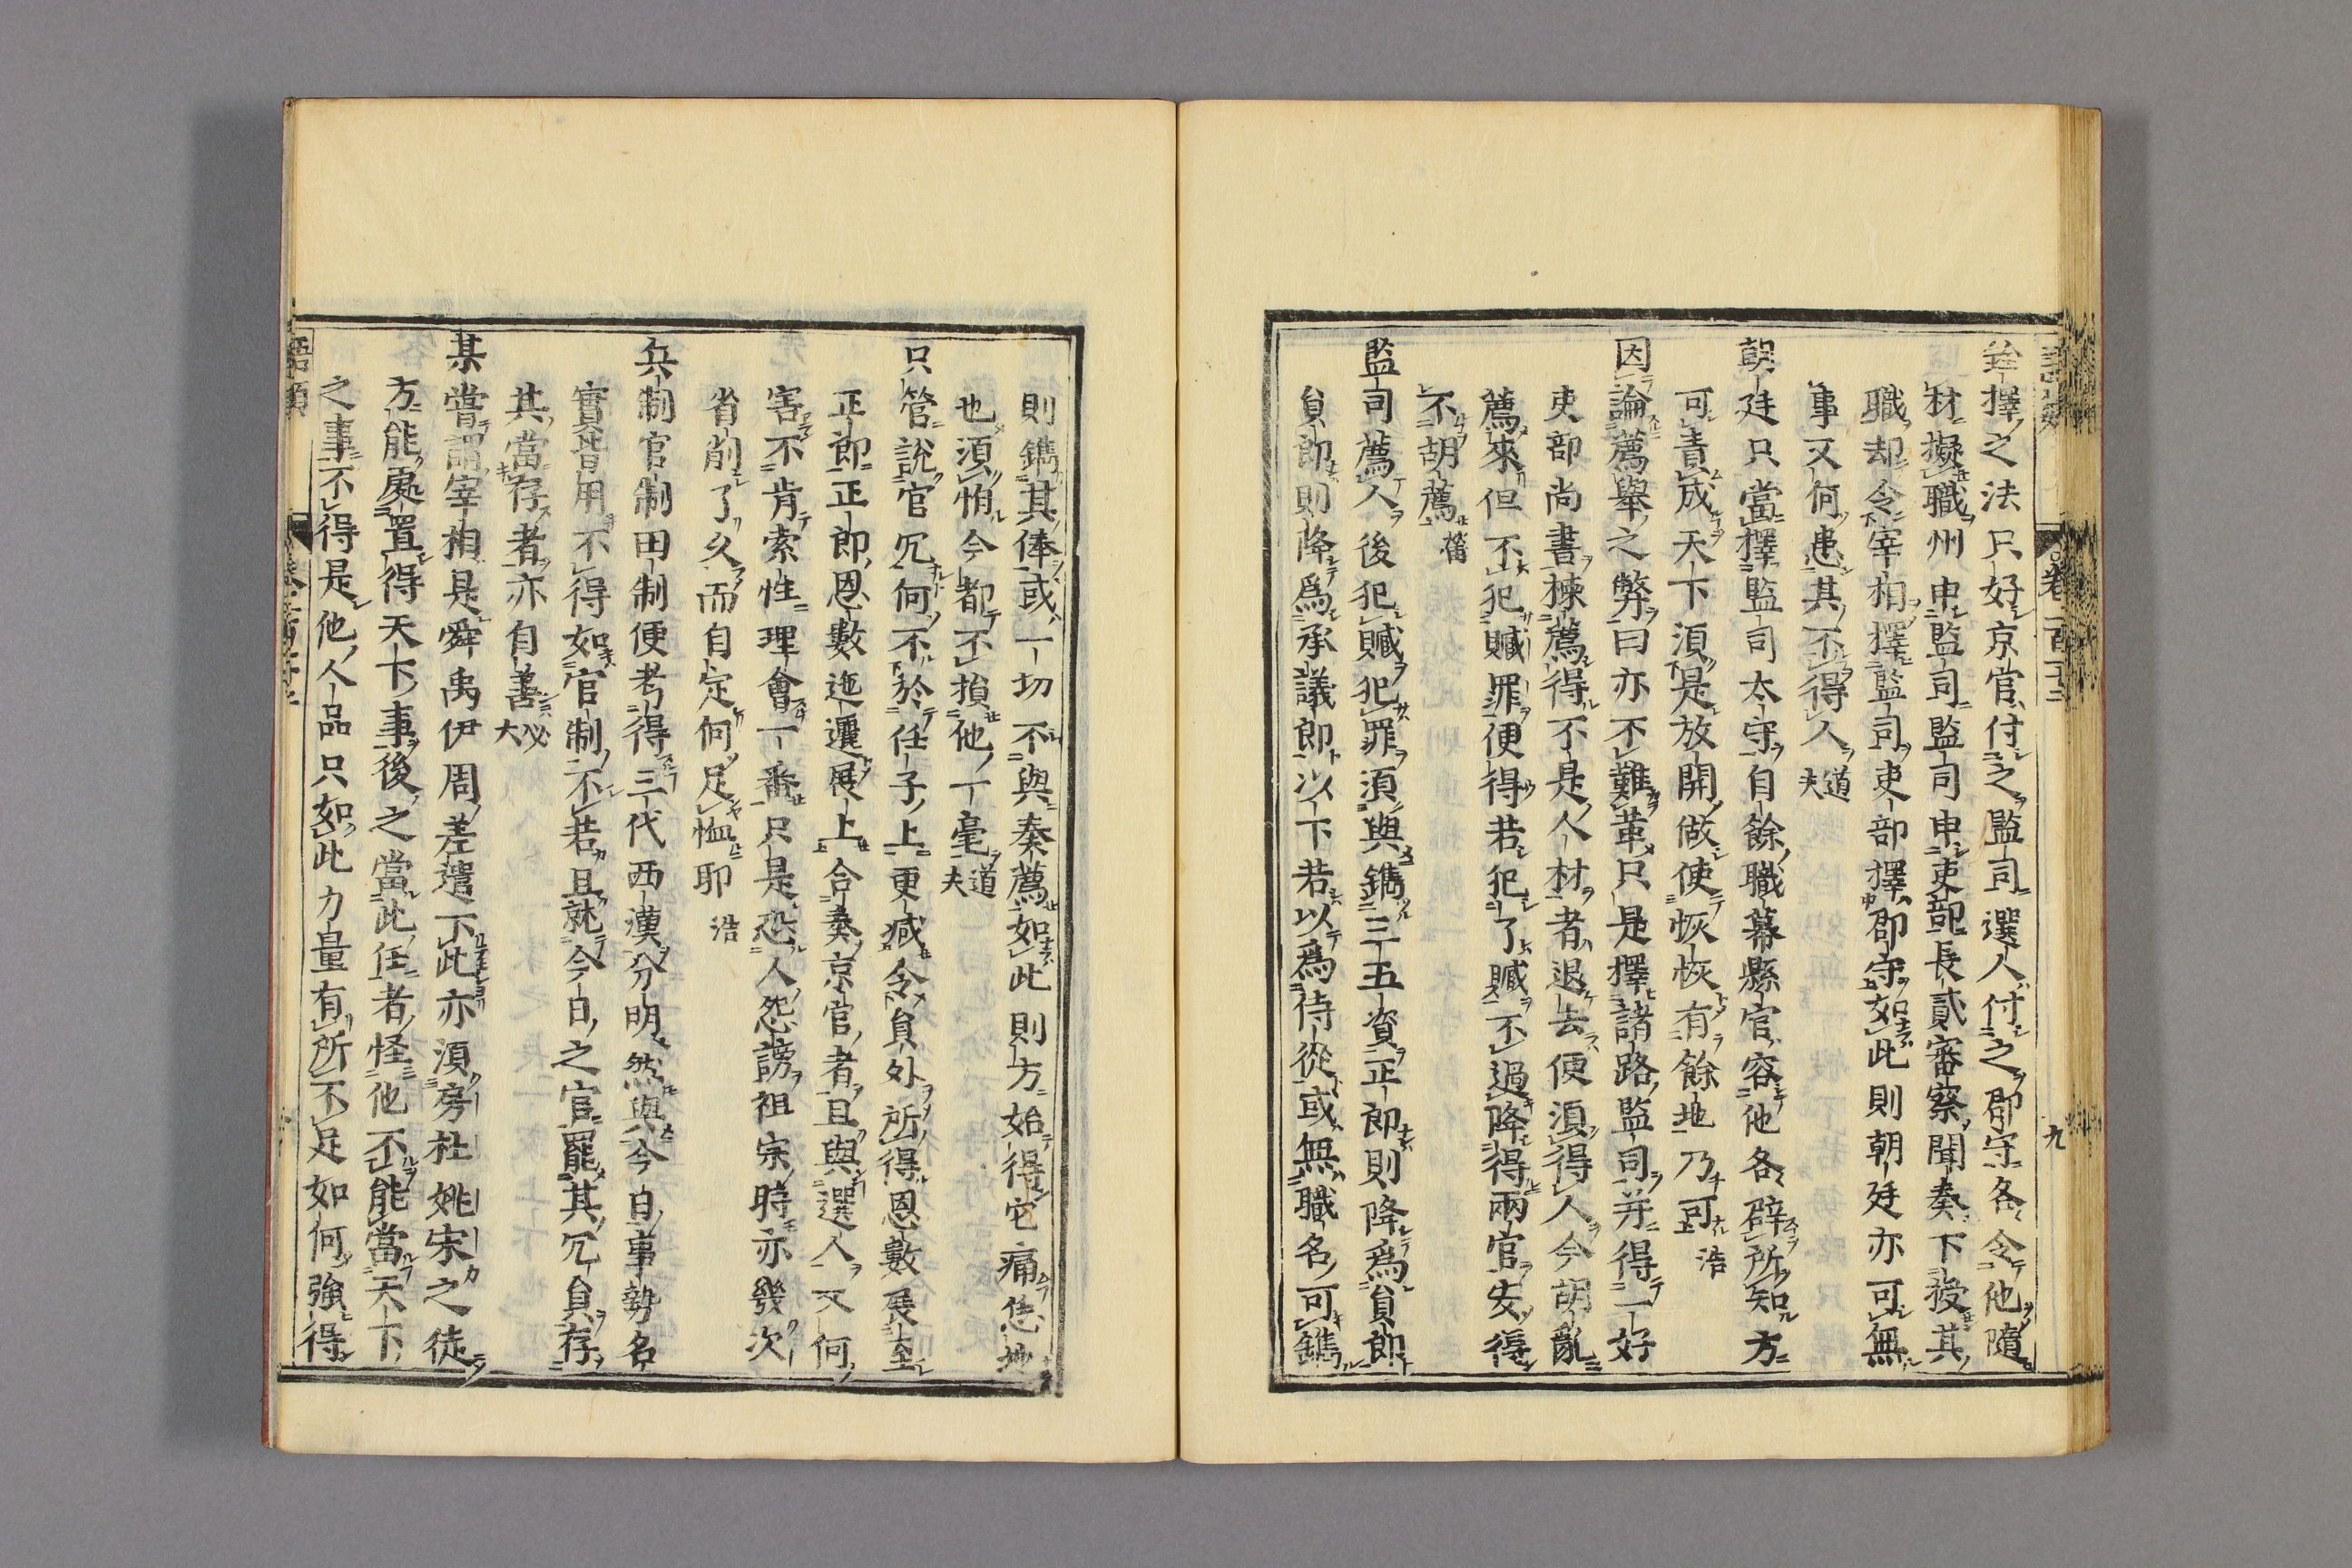 銓擇之法只好京官付之監司選人付之郡守各令他隨
材擬職州申監司監司申吏部長貳審察聞奏下授其
職却令宰相擇監司吏部擇郡守如此則朝廷亦可無
事又何患其不得人道夫
朝廷只當擇監司太守自餘職幕縣官容他各辟所知方
可責成天下須是放開做使恢恢有餘地乃可浩
因論薦舉之弊曰亦不難革只是擇諸路監司并得一好
吏部尚書揀薦得不是人材者退去便須得人今胡亂
薦來但不犯贓罪便得若犯了贓不過降得兩官安得
不胡薦㽦
監司薦人後犯贓犯罪須與鐫三五資正郎則降爲員郎
員郎則降爲承議郎以下若以爲侍從或無職名可鐫
卷一百十二
九
則鐫其俸或一切不與奏薦如此則方始得它痛恁地
也須怕今都不損他一毫道夫
只管說官冗何不於任子上更減令員外所得恩數展至
正郎正郎恩數迤邐展上合奏京官者且與選人又何
害不肯索性理會一番只是恐人怨謗祖宗時亦幾次
省削了久而自定何足恤耶浩
兵制官制田制便考得三代西漢分明然與今日事勢名
實皆用不得如官制不若且就今日之官罷其冗員存
其當存者亦自善必大
某嘗謂宰相是舜禹伊周差遣下此亦須房杜姚宋之徒
方能處置得天下事後之當此任者怪他不能當天下
之事不得是他人品只如此力量有所不足如何強得
語類